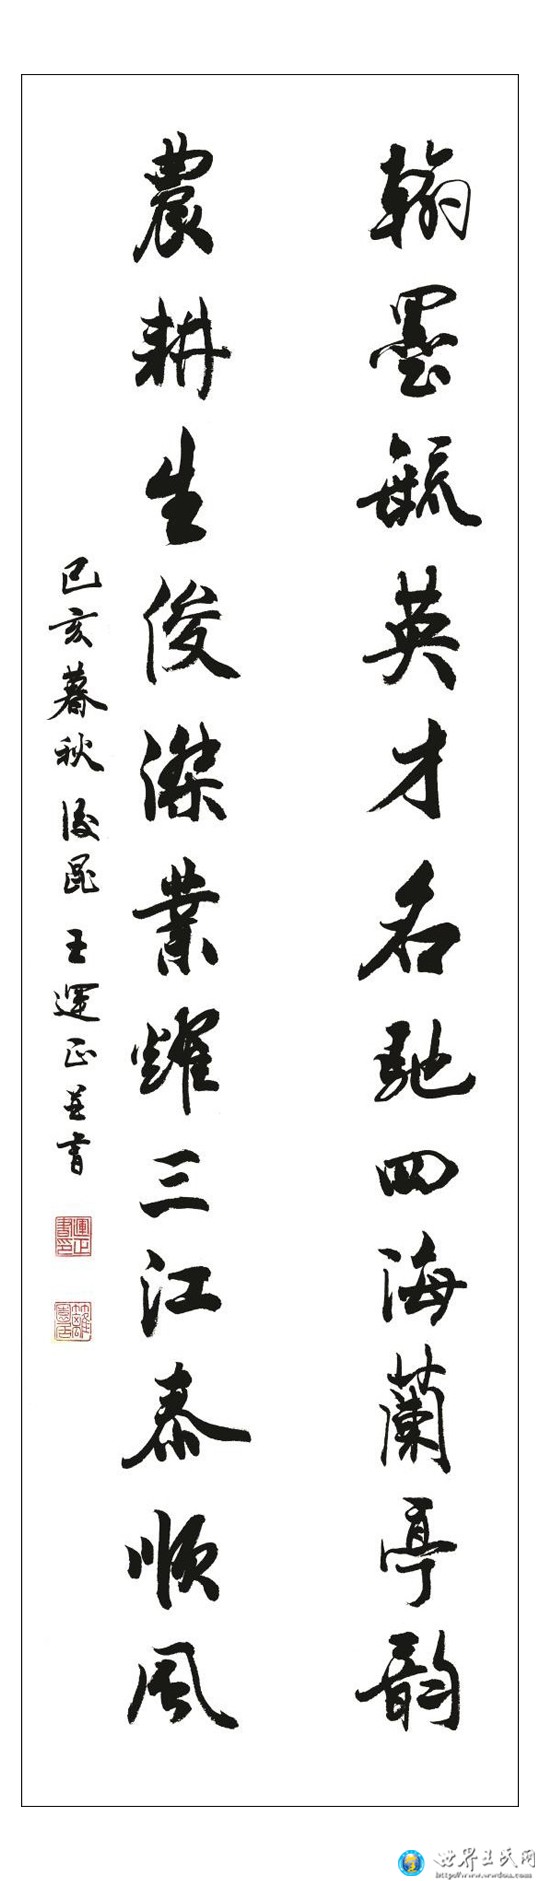 翰墨毓英才名馳四海蘭亭韵
農耕生俊傑業耀三江泰順風
己亥暮秋後昆王運正並書
運正書印
世界王氏网
http://www.wwdou.com